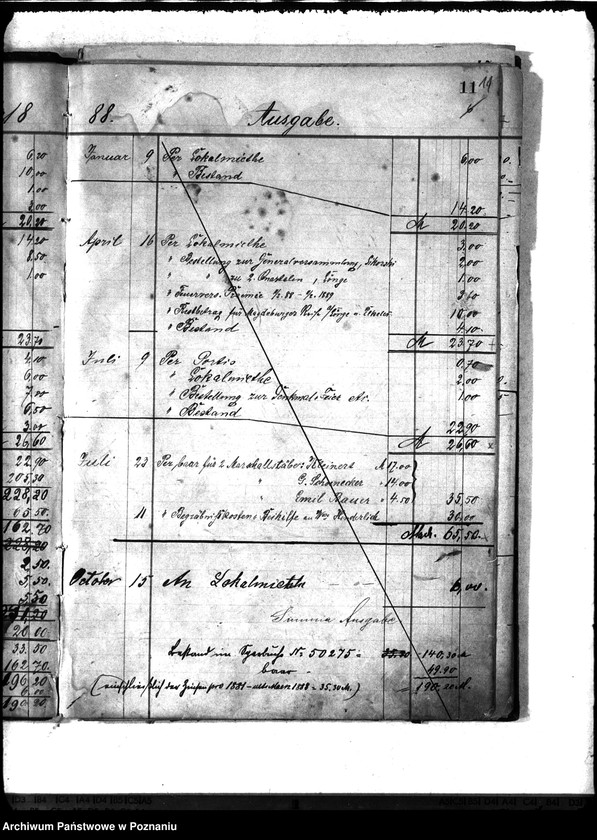 11 14
18 88. Ausgabe.
6,20
10,00
1,00
3,00
20,20
14,20
8,50
1,00
23,70
4,10
6,00
7,00
6,50
3,00
26,60
22,90
205,30
228,20
65.50
162.70
2.50
5,50
5,50
120.00
33.50
162.70
196,20
6,00
190,20
Januar 9 Per Lokalmiethe 6,00
" Bestand 14.20
M 20.20
April 16 Per Lokalmiethe 3,00
" Bestellung zur Generalversammlung, Sikorski 2,00
" " zu 2 Quartalen, Lönge 1,00
" Feuervers. Prämie 88 - 1889 3,60
" Restbetrag für Magdeburger 10,00
" Bestand 4,10
M 23,70
Juli 9 Per Porto 0,70
" Lokalmiethe 2,00
" Bestellung zur Denkmal-Feier etc. 1,00
" Bestand 22,90
M 26,60
Juli 23 Per baar für 2 Marschallstäbe: Kleinert M 17.00
" G. Schoenecker " 14.00
" Emil " 4.50 35,50
" Begräbnißkosten Beihilfe an 30,00
Mark. 65,50.
October 15 An Lokalmiethe 6,00.
Summa Ausgabe
Bestand im Sparbuch Nr. 50275 = 140,30 M
baar 49.90
(einschließlich der Zinsen pro 1881 - ult. Maerz 1888 = 35.30 M.) = 190,20 M.
Archiwum Państwowe w Poznaniu